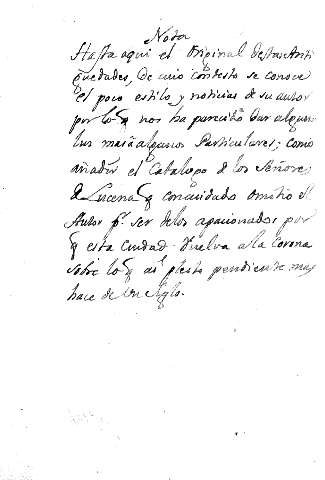 Nota
Hasta aqui el Original destas Anti
guedades, de cuio contesto se conoce
el poco estilo, y noticias de su autor
por lo q nos ha parecido dar algun
luz à algunos Particulares; como
añadir el Catalogo de los Señores
de Lucena q con cuidado omitio el
Autor pr. ser de los apacionados por
q esta Ciudad vuelva a la Corona
sobre lo q ai pleito pendiente mas
hace de un siglo.